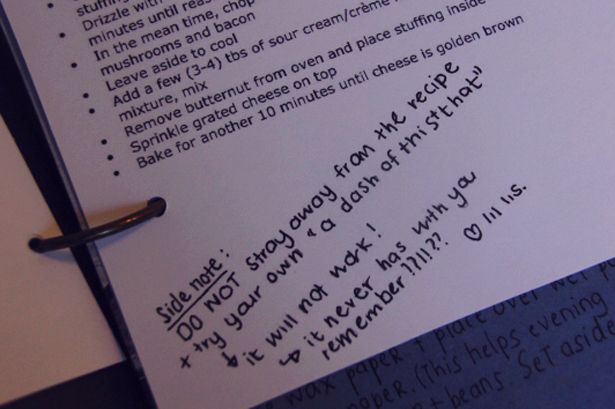 stuffing
Drizzle with
minutes until
• In the mean time, chop
mushrooms and bacon
• Leave aside to cool
• Add a few (3-4) tbs of sour cream/crème
mixture, mix
• Remove butternut from oven and place stuffing inside
• Sprinkle grated cheese on top
• Bake for another 10 minutes until cheese is golden brown
Side note:
DO NOT stray away from the recipe
+ try your own "a dash of this & that"
↳ it will not work!
↳ it never has with you
remember!?!!??. ♡ lil lis.
wax paper + place over
paper. (This helps evening
+ beans. Set aside